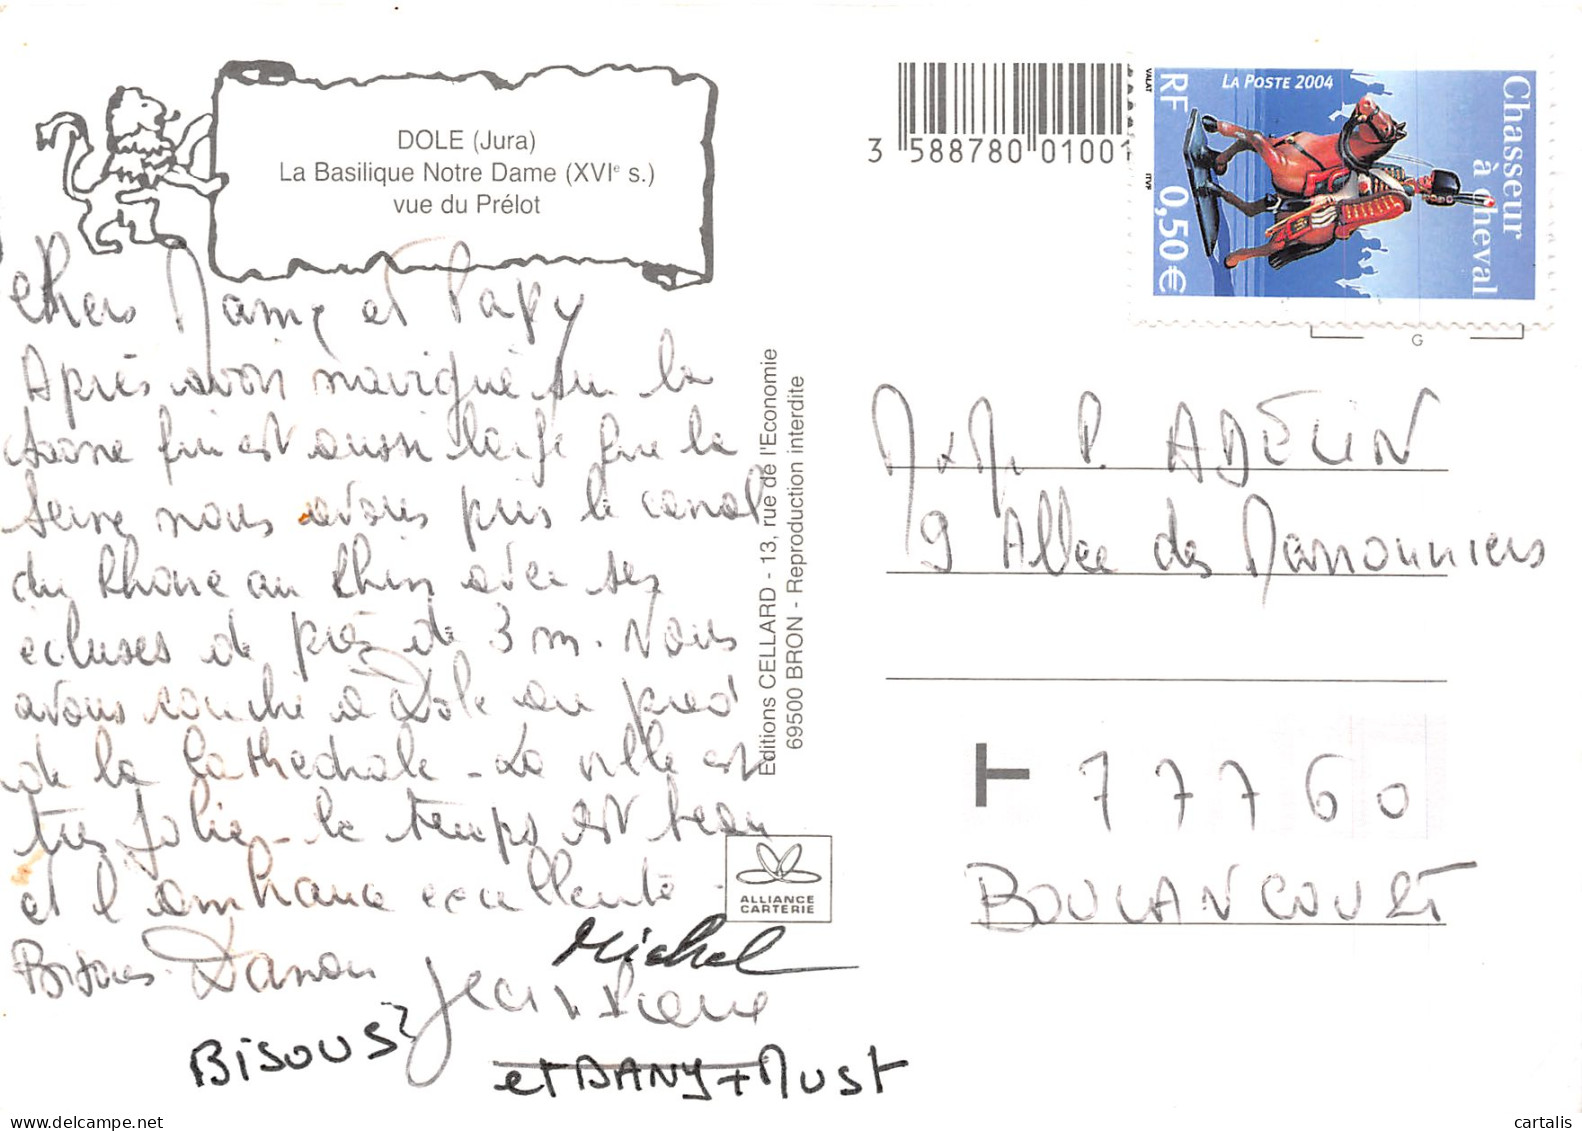 DOLE (Jura)
La Basilique Notre Dame (XVIe s.)
vue du Prélot
chers Mamie et Papy
Après avoir navigué sur la
Saone qui est aussi large que la
Seine nous avons pris le canal
du Rhone au Rhin avec ses
écluses de près de 3 m. Nous
avons couché à Dole au pied
de la Cathedrale - La ville est
tres jolie - le temps est beau
et l'ambiance excellente -
Bisous
Michel
BISOUS
et DANY + MUST
Editions CELLARD - 13, rue de l'Economie
69500 BRON - Reproduction interdite
ALLIANCE
CARTERIE
3 588780 01001
Chasseur
à cheval
LA POSTE 2004
RF 0,50 €
VALAT
ITVF
G
M x M P. ADELIN
9 Allee des Marronniers
T 77760
BOULANCOURT
delcampe.net
cartalis